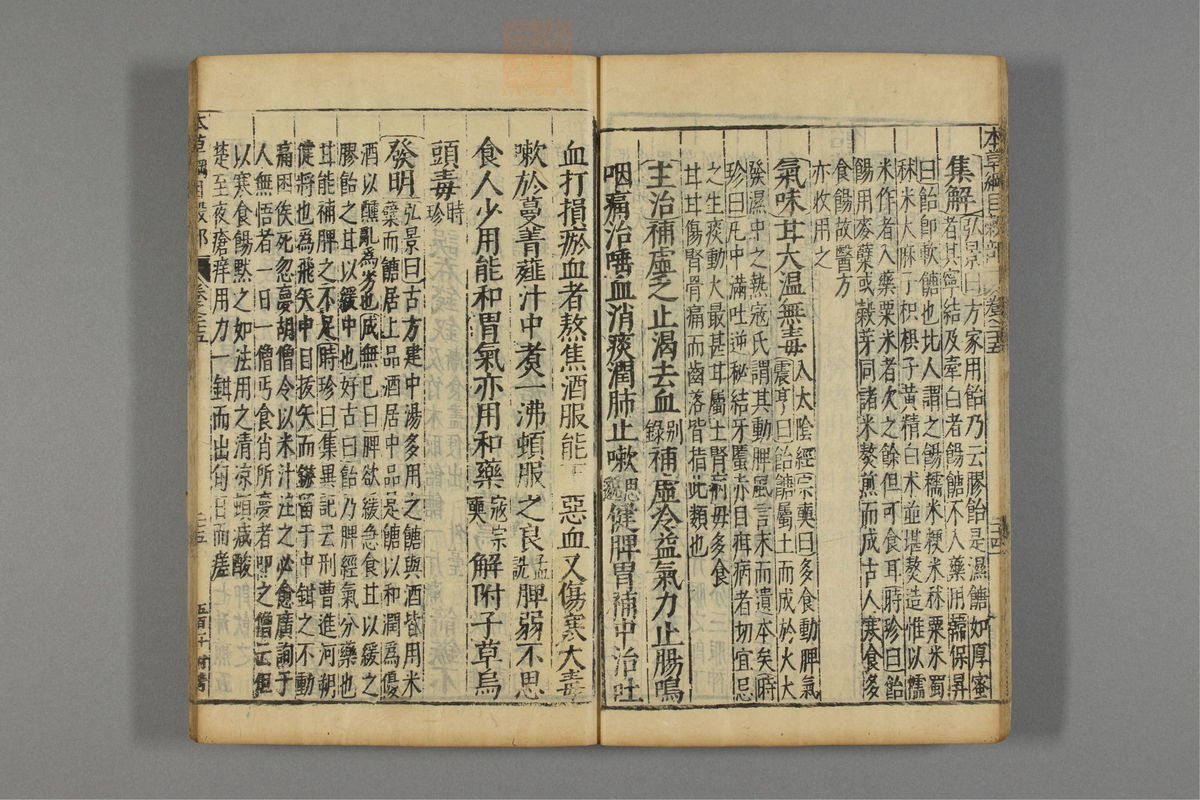 本草綱目穀部 卷之二十五 二十四
集解弘景曰方家用飴乃云膠飴是濕糖如厚蜜
者其寧結及牽白者餳糖不入藥用韓保昇
曰飴即軟糖也北人謂之餳糯米粳米秫粟米蜀
秫米大麻子枳椇子黃精白朮並堪熬造惟以糯
米作者入藥粟米者次之餘但可食耳時珍曰飴
餳用麥蘖或穀芽同諸米熬煎而成古人寒食多
食餳故醫方
亦收用之
氣味甘大溫無毒入太陰經宗奭曰多食動脾氣
震亨曰飴糖屬土而成於火大
發濕中之熱寇氏謂其動脾風言末而遺本矣時
珍曰凡中滿吐逆秘結牙䘌赤目疳病者切宜忌
之生痰動火最甚甘屬土腎病毋多食
甘甘傷腎骨痛而齒落皆指此類也
主治補虛乏止渴去血別錄補虛冷益氣力止腸鳴
咽痛治唾血消痰潤肺止嗽思邈健脾胃補中治吐
血打損瘀血者熬焦酒服能下惡血又傷寒大毒
嗽於蔓菁薤汁中煑一沸頓服之良孟詵脾弱不思
食人少用能和胃氣亦用和藥寇宗奭解附子草烏
頭毒時珍
發明弘景曰古方建中湯多用之糖與酒皆用米
蘖而糖居上品酒居中品是糖以和潤為優
酒以醺亂為劣也成無己曰脾欲緩急食甘以緩之
膠飴之甘以緩中也好古曰飴乃脾經氣分藥也
甘能補脾之不足時珍曰集異記云刑曹進河朔
健將也為飛矢中目拔矢而鏃留于中鉗之不動
痛困俟死忽夢胡僧令以米汁注之必愈廣詢于
人無悟者一日一僧丐食肖所夢者叩之僧云但
以寒食餳點之如法用之清涼頓減酸
楚至夜瘡痒用力一鉗而出旬日而瘥
本草綱目穀部 卷之二十五